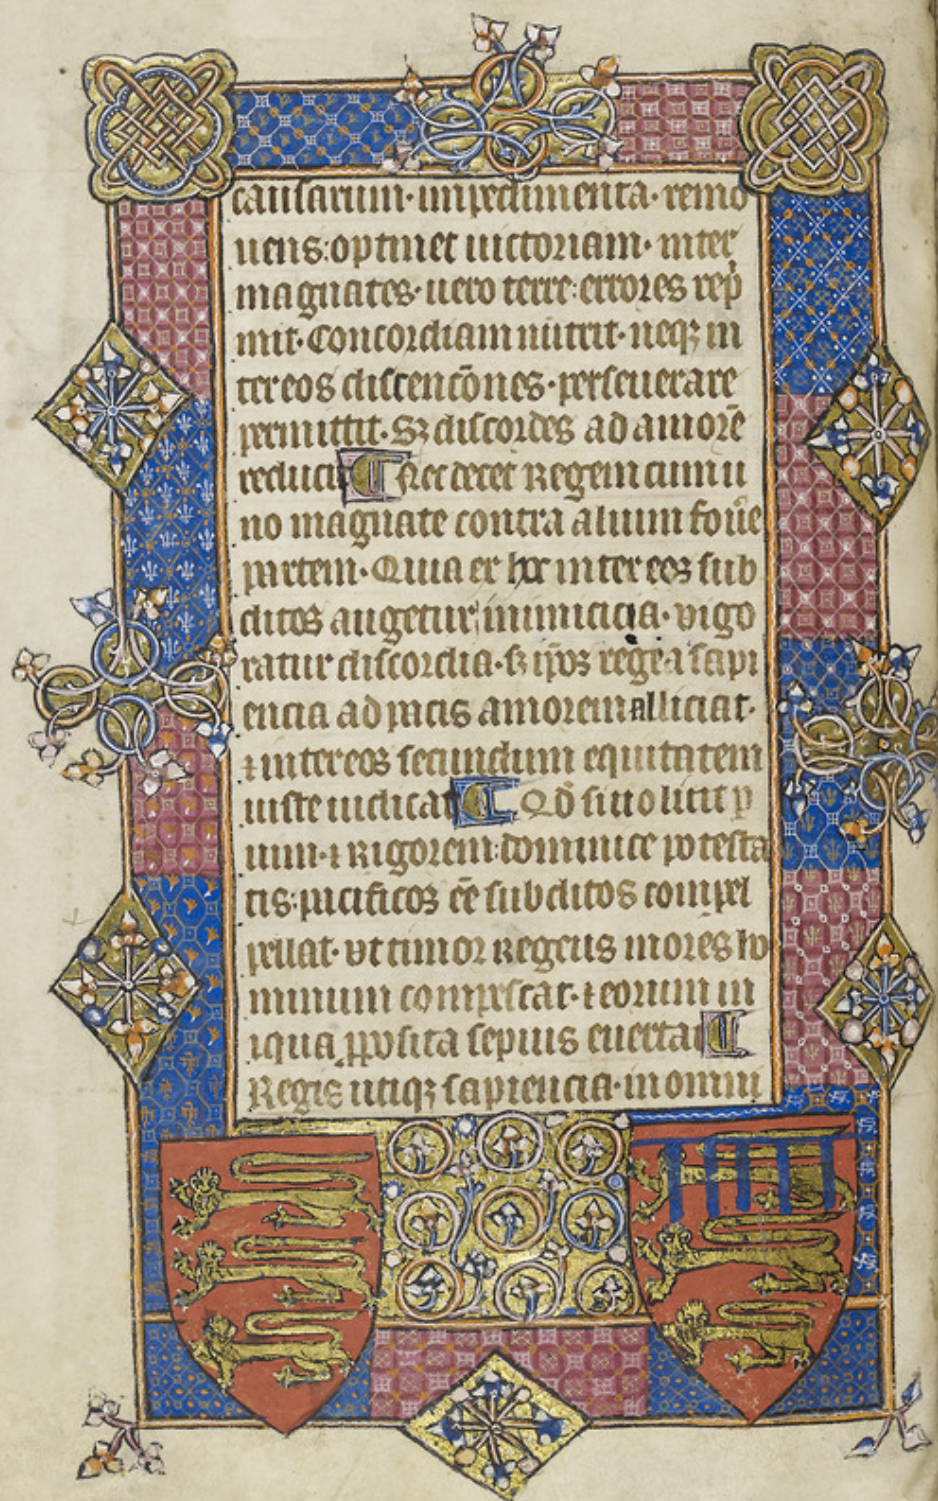 causarum · impedimenta · remo
uens : optinet uictoriam · inter
magnates · uero terre : errores rep̍
mit · Concordiam nutrit · neqꝫ in
ter eos discenc̄ones · perseuerare
permittit · Sꝫ discordes ad amorē
reducit ¶ Nec decet Regem cum u
no magnate contra alium fou̅e
partem · Quia ex hoc inter eos sub
ditos augetur inimicicia · vigo
ratur discordia · sꝫ ip̄os rege⁊a sapi
encia ad pacis amorem alliciat ·
⁊ inter eos secundum equitatem
iuste iudicat ¶ Qd̄ si uoluit p
uim · ⁊ Rigorem : dominice potesta
tis : pacificos ēe subditos compel
pellat · vt timor Regens mores ho
minum compescat · ⁊ eorum in
iqua ꝓposita sepius euertat ¶
Regis utiqꝫ sapiencia · in omni